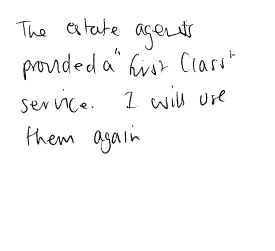 The estate agents
provided a "first Class"
service. I will use
them again